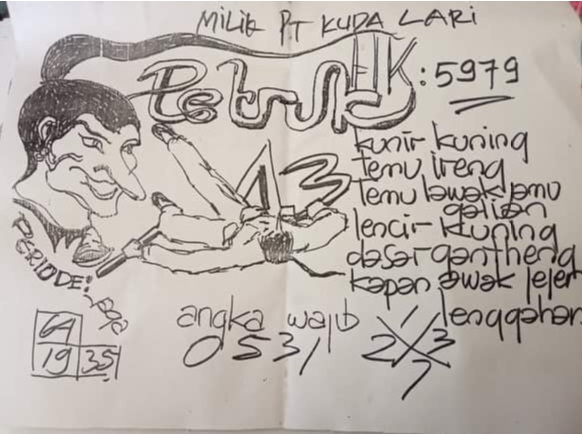 MILIK PT KUDA LARI
Petruk
HK: 5979
13
kunir kuning
temu ireng
temu lawak jamu
galian
lencir kuning
dasar gantheng
kapan awak lejer
lenggahan
PERIODE:
64
19 35
angka wajib
0531
1
2 3
7